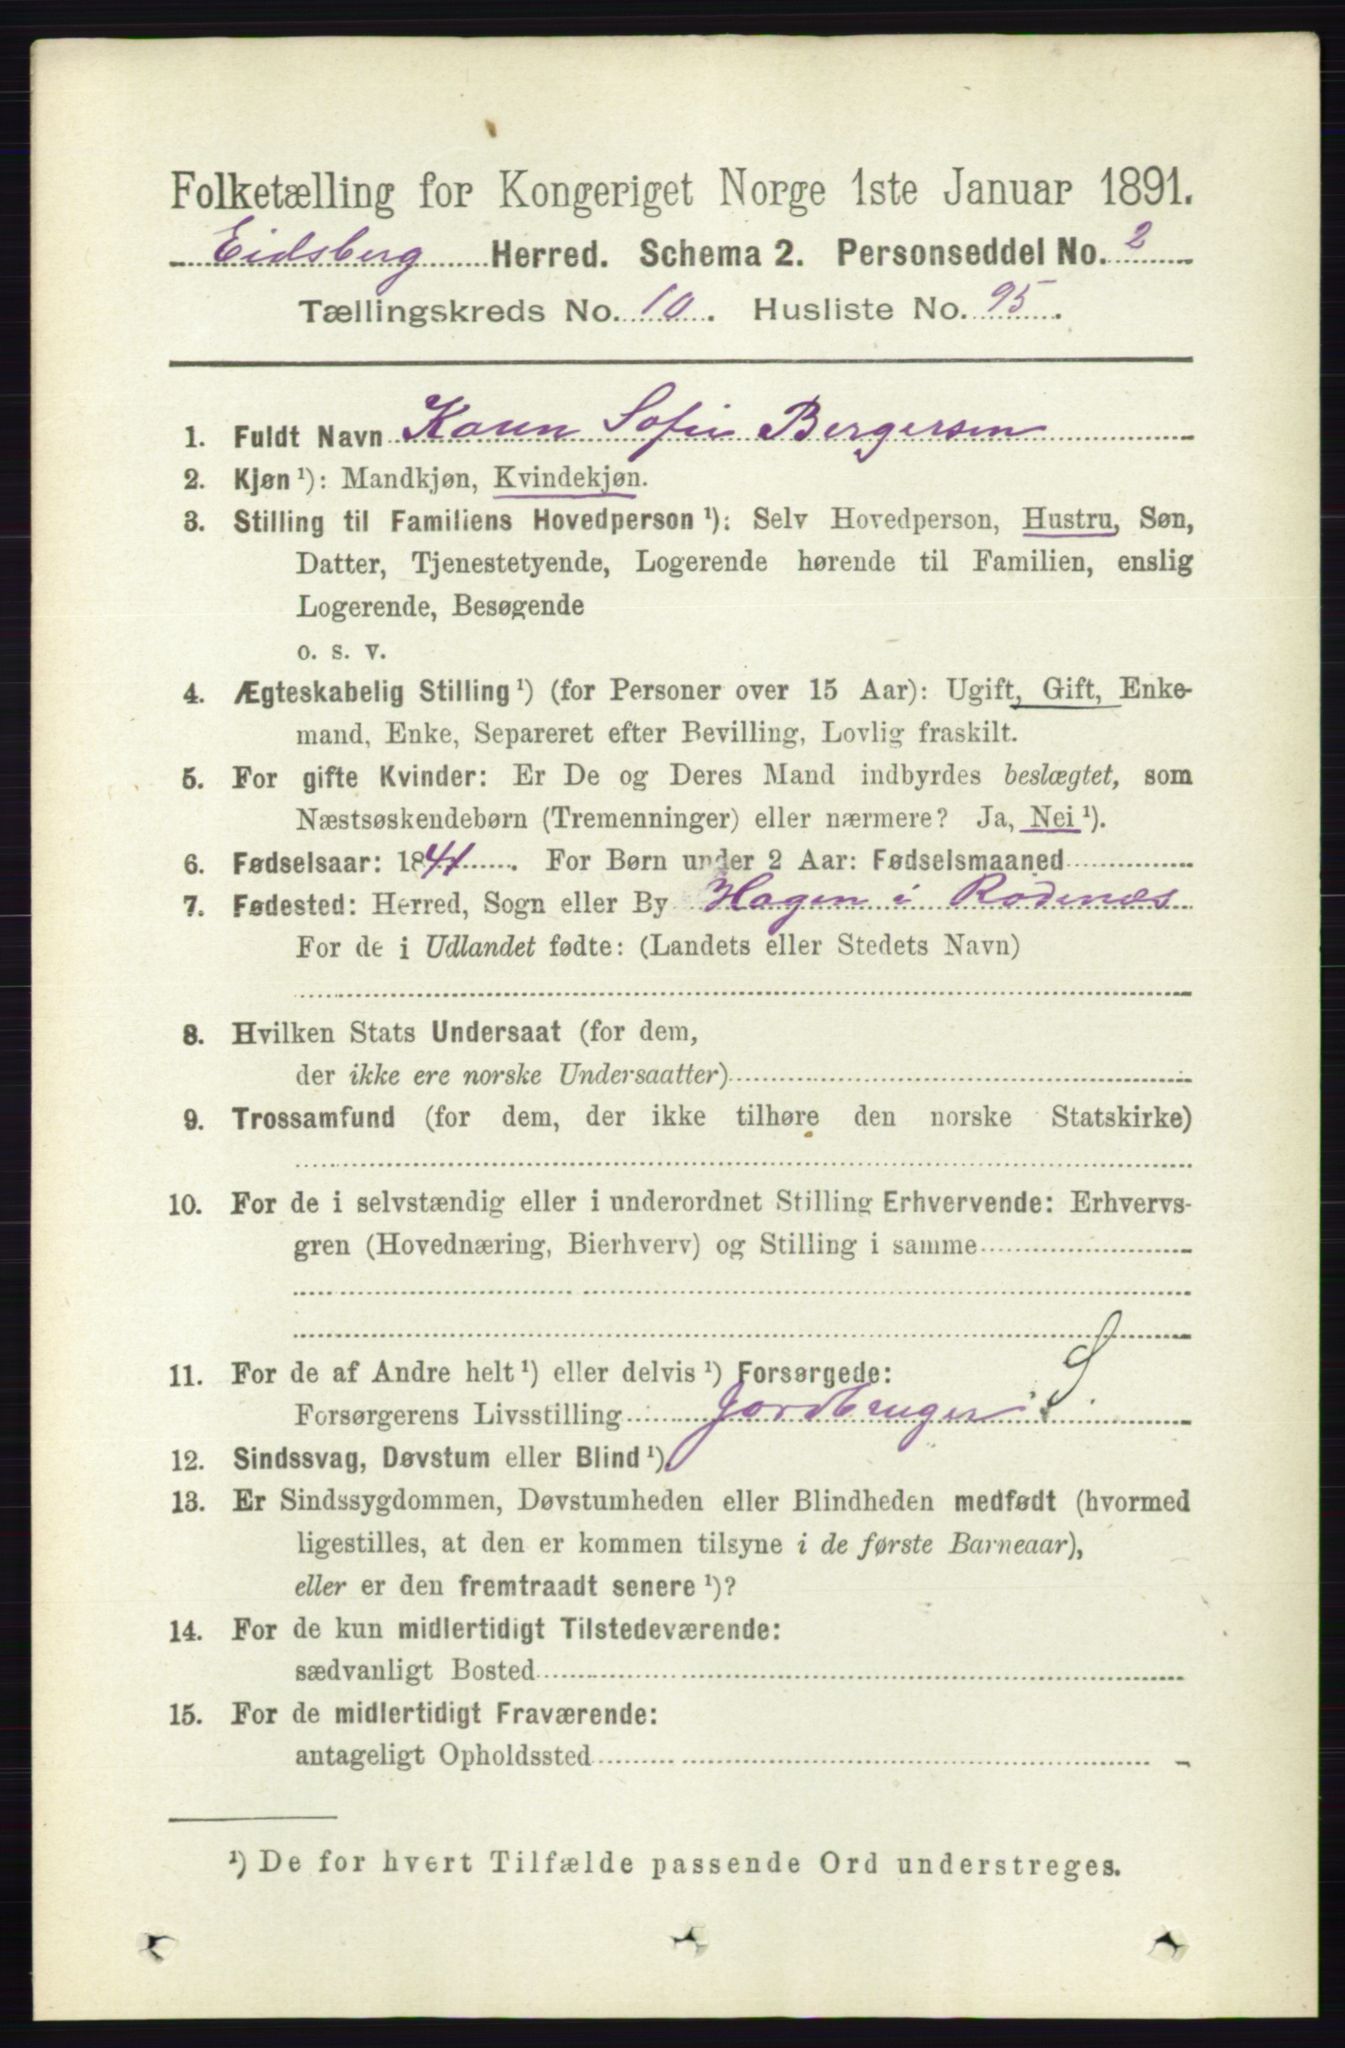 Folketælling for Kongeriget Norge 1ste Januar 1891.
Eidsberg Herred. Schema 2. Personseddel No. 2
Tællingskreds No. 10. Husliste No. 95.
1. Fuldt Navn Karen Sofie Bergersen
2. Kjøn ¹): Mandkjøn, Kvindekjøn.
3. Stilling til Familiens Hovedperson ¹): Selv Hovedperson, Hustru, Søn,
Datter, Tjenestetyende, Logerende hørende til Familien, enslig
Logerende, Besøgende
o. s. v.
4. Ægteskabelig Stilling ¹) (for Personer over 15 Aar): Ugift, Gift, Enke-
mand, Enke, Separeret efter Bevilling, Lovlig fraskilt.
5. For gifte Kvinder: Er De og Deres Mand indbyrdes beslægtet, som
Næstsøskendebørn (Tremenninger) eller nærmere? Ja, Nei ¹).
6. Fødselsaar: 1841. For Børn under 2 Aar: Fødselsmaaned
7. Fødested: Herred, Sogn eller By Hagen i Rødenæs
For de i Udlandet fødte: (Landets eller Stedets Navn)
8. Hvilken Stats Undersaat (for dem,
der ikke ere norske Undersaatter)
9. Trossamfund (for dem, der ikke tilhøre den norske Statskirke)
10. For de i selvstændig eller i underordnet Stilling Erhvervende: Erhvervs-
gren (Hovednæring, Bierhverv) og Stilling i samme
11. For de af Andre helt ¹) eller delvis ¹) Forsørgede:
Forsørgerens Livsstilling Jordbruger S
12. Sindssvag, Døvstum eller Blind ¹).
13. Er Sindssygdommen, Døvstumheden eller Blindheden medfødt (hvormed
ligestilles, at den er kommen tilsyne i de første Barneaar),
eller er den fremtraadt senere ¹)?
14. For de kun midlertidigt Tilstedeværende:
sædvanligt Bosted
15. For de midlertidigt Fraværende:
antageligt Opholdssted
¹) De for hvert Tilfælde passende Ord understreges.